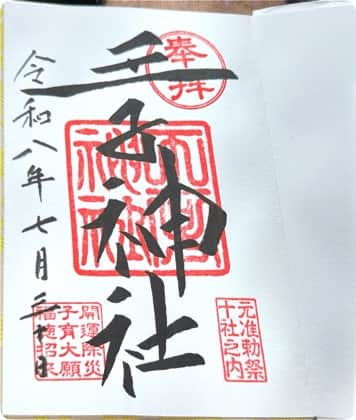 奉拝
王子神社
元准勅祭
十社之内
開運除災
子育大願
福徳招来
令和八年七月二十日